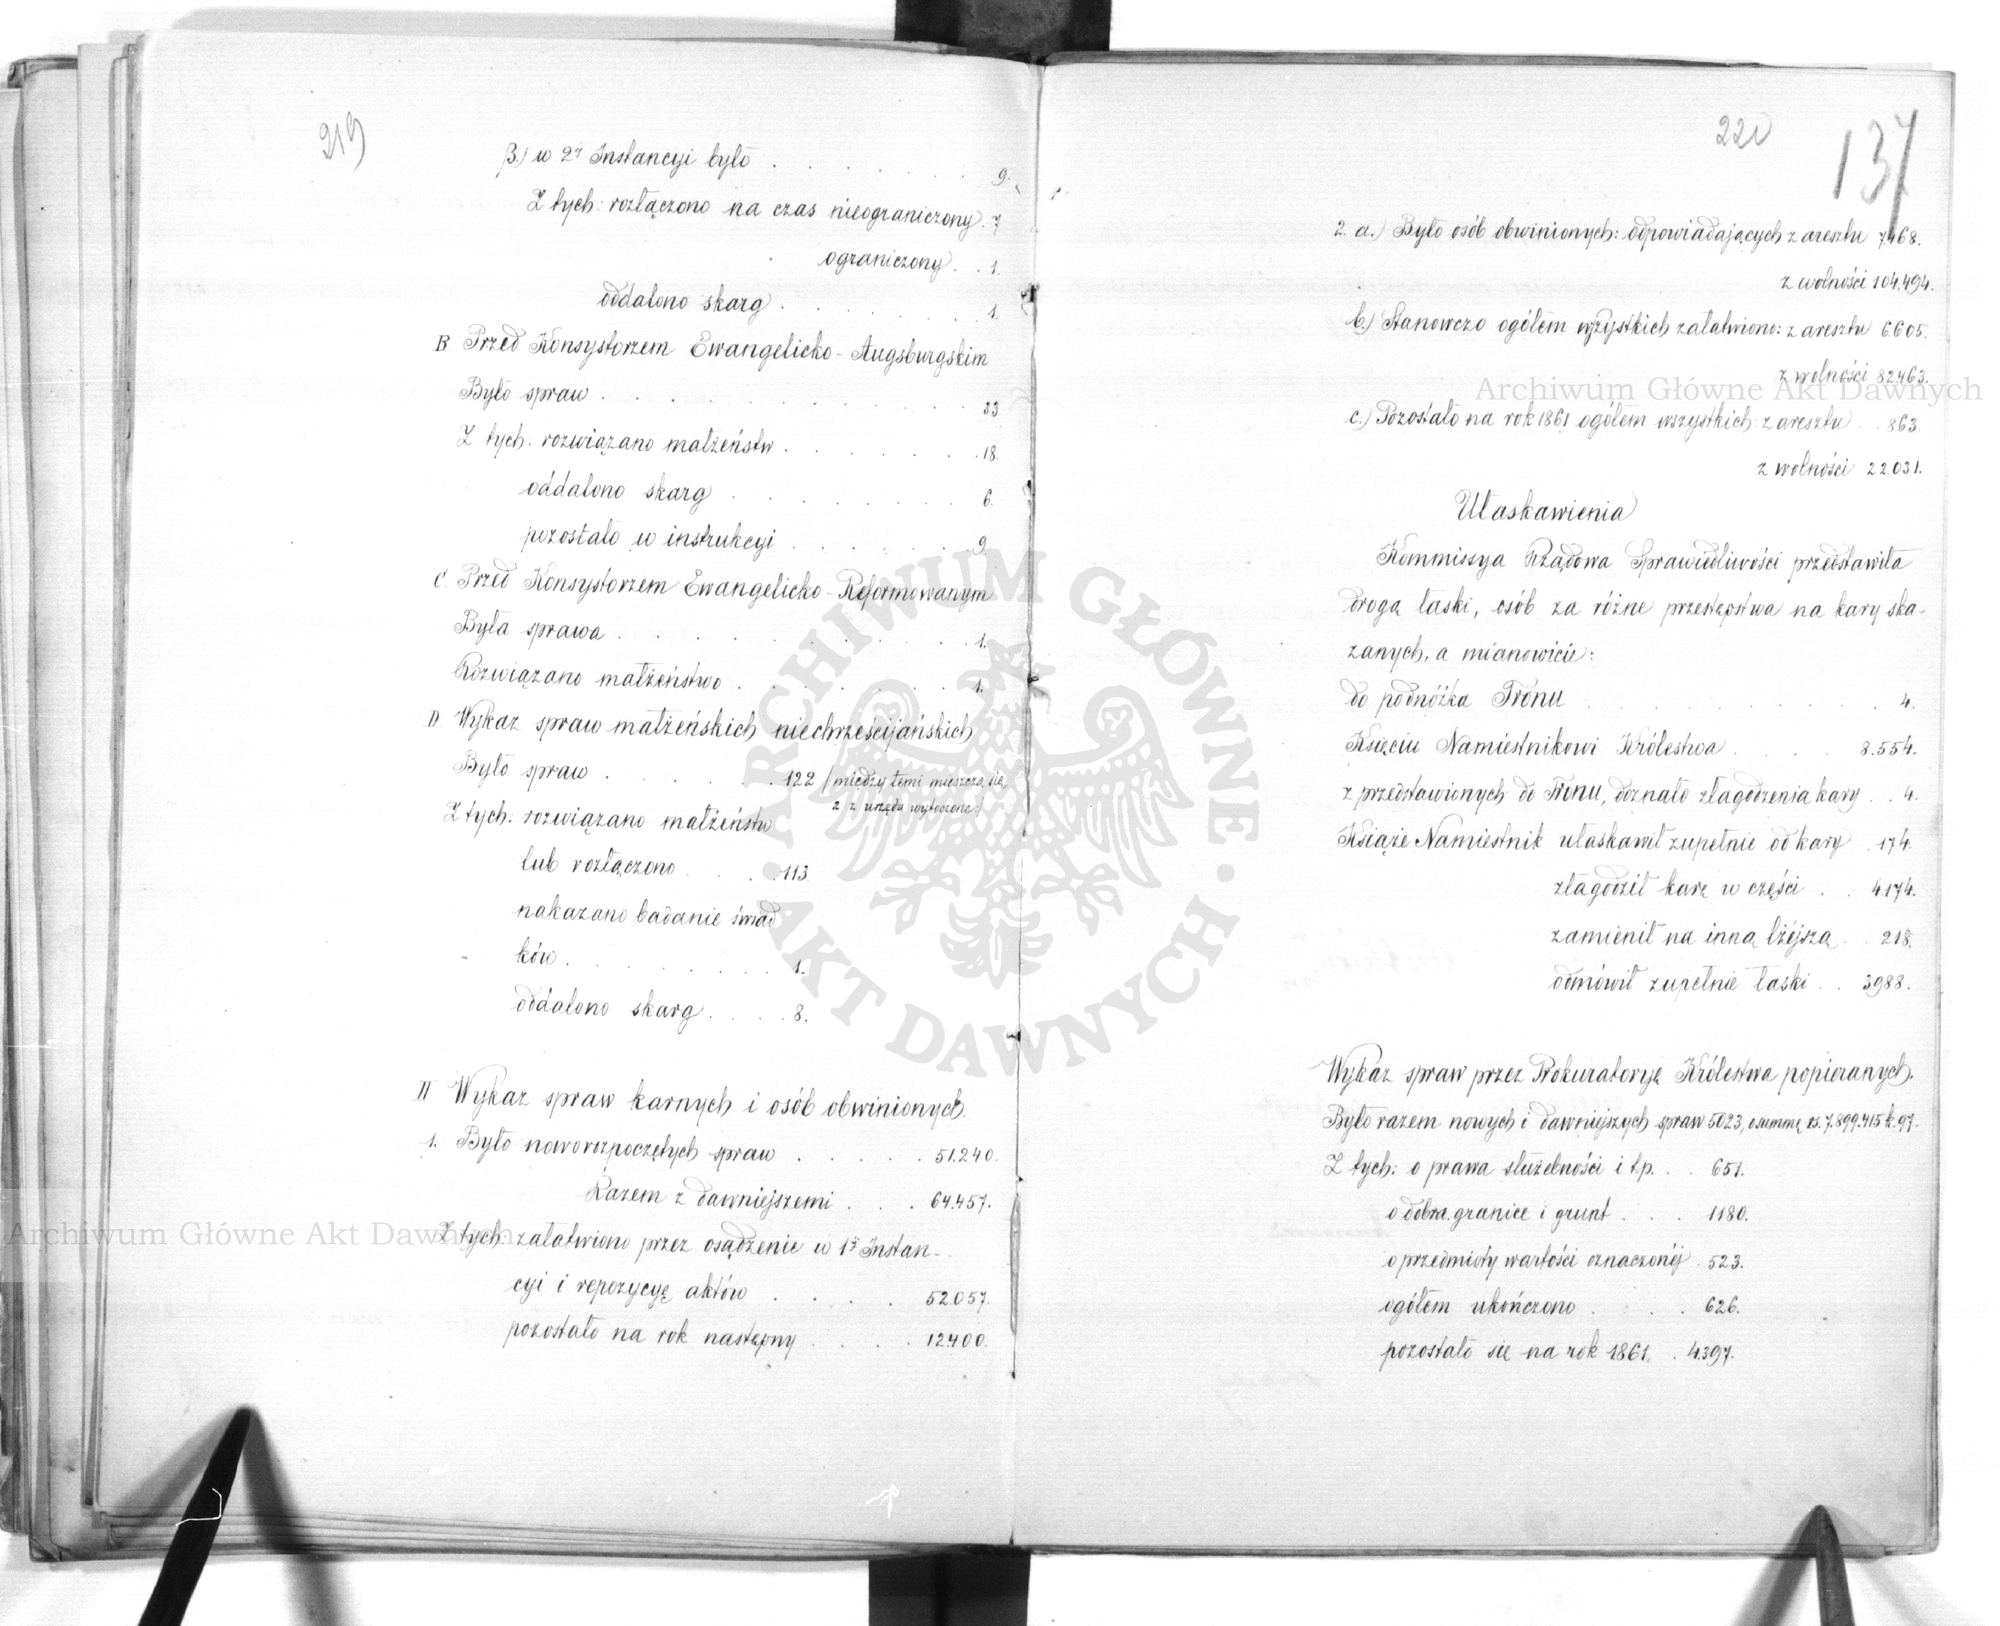 219
β.) w 2ej Instancyi było . . . . . . . 9.
Z tych: rozłączono na czas nieograniczony. 7
ograniczony . . 1.
oddalono skarg . . . . . . . 1.
B Przed Konsystorzem Ewangelicko-Augsburgskim
Było spraw . . . . . . . . . 33
Z tych. rozwiązano małżeństw . . . . . . 18.
oddalono skarg . . . . . . . 6.
pozostało w instrukcyi . . . . . . 9.
C Przed Konsystorzem Ewangelicko-Reformowanym
Była sprawa . . . . . . . . . 1.
Rozwiązano małżeństwo . . . . . . 1.
D Wykaz spraw małżeńskich niechrześcijańskich
Było spraw . . . . . 122 /między temi mieszczą się
2 z urzędu wytoczone:/
Z tych: rozwiązano małżeństw
lub rozłączono . . . . 113
nakazano badanie świad
ków . . . . . . . 1.
oddalono skarg . . . . 8.
II Wykaz spraw karnych i osób obwinionych.
1. Było noworozpoczętych spraw . . . . . 51.240.
Razem z dawniejszemi . . . 64.457.
Z tych: załatwiono przez osądzenie w 1ej Instan-
cyi i repozycyę aktów . . . . 52.057.
pozostało na rok następny . . . . 12.400.
220
137
2. a.) Było osób obwinionych: odpowiadających z aresztu 7,468.
z wolności 104.494.
b.) Stanowczo ogółem wszystkich załatwiono: z aresztu 6605.
z wolności 82.463.
c.) Pozostało na rok 1861 ogółem wszystkich: z aresztu . . 863.
z wolności 22.031.
Ułaskawienia
Kommissya Rządowa Sprawiedliwości przedstawiła
drogą łaski, osób za różne przestępstwa na kary ska-
zanych, a mianowicie:
do podnóżka Tronu . . . . . . . . . . 4.
Księciu Namiestnikowi Królestwa . . . . 8.554.
z przedstawionych do Tronu, doznało złagodzenia kary . . 4.
Książe Namiestnik ułaskawił zupełnie od kary . 174.
złagodził karę w części . . 4174.
zamienił na inną lżéjszą . . 218.
odmówił zupełnie łaski . . 3988.
Wykaz spraw przez Prokuratoryę Królestwa popieranych.
Było razem nowych i dawniejszych spraw 5023, o summę rs. 7.899.415 k. 97.
Z tych: o prawa służebności i tp. . . 651.
o dobra, granice i grunt . . . 1180.
o przedmioty wartości oznaczonéj . 523.
ogółem ukończono . . . . 626.
pozostało się na rok 1861. . 4.397.
Archiwum Główne Akt Dawnych
Archiwum Główne Akt Dawnych
ARCHIWUM GŁÓWNE • AKT DAWNYCH •